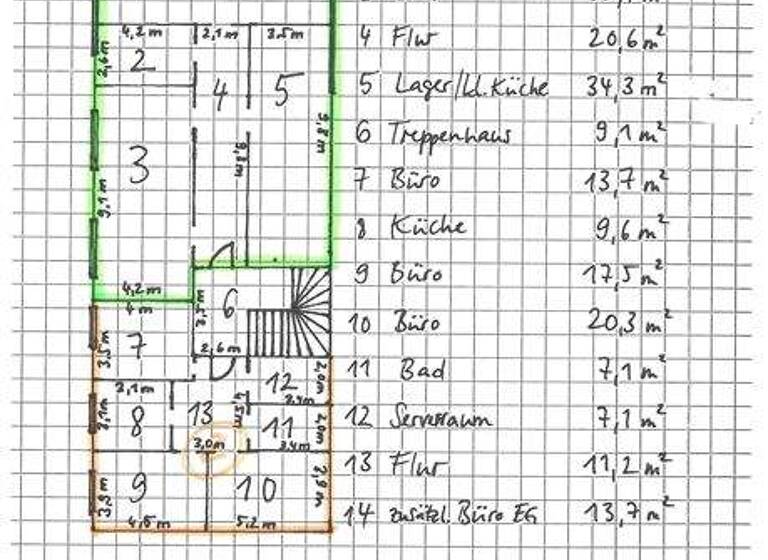 4 Flur 20,6 m²
5 Lager/kl. Küche 34,3 m²
6 Treppenhaus 9,1 m²
7 Büro 13,7 m²
8 Küche 9,6 m²
9 Büro 17,5 m²
10 Büro 20,3 m²
11 Bad 7,1 m²
12 Serverraum 7,1 m²
13 Flur 11,2 m²
14 zusätzl. Büro EG 13,7 m²
4,2 m 2,1 m 3,5 m
2,6 m
2
4
5
9,8 m
9,8 m
3
9,1 m
4,2 m
4 m
3,5 m
6
7
3,5 m
2,6 m
3,1 m
12
2,0 m
3,4 m
8
3,1 m
13
11
2,0 m
3,0 m
3,4 m
9
10
2,9 m
5,2 m